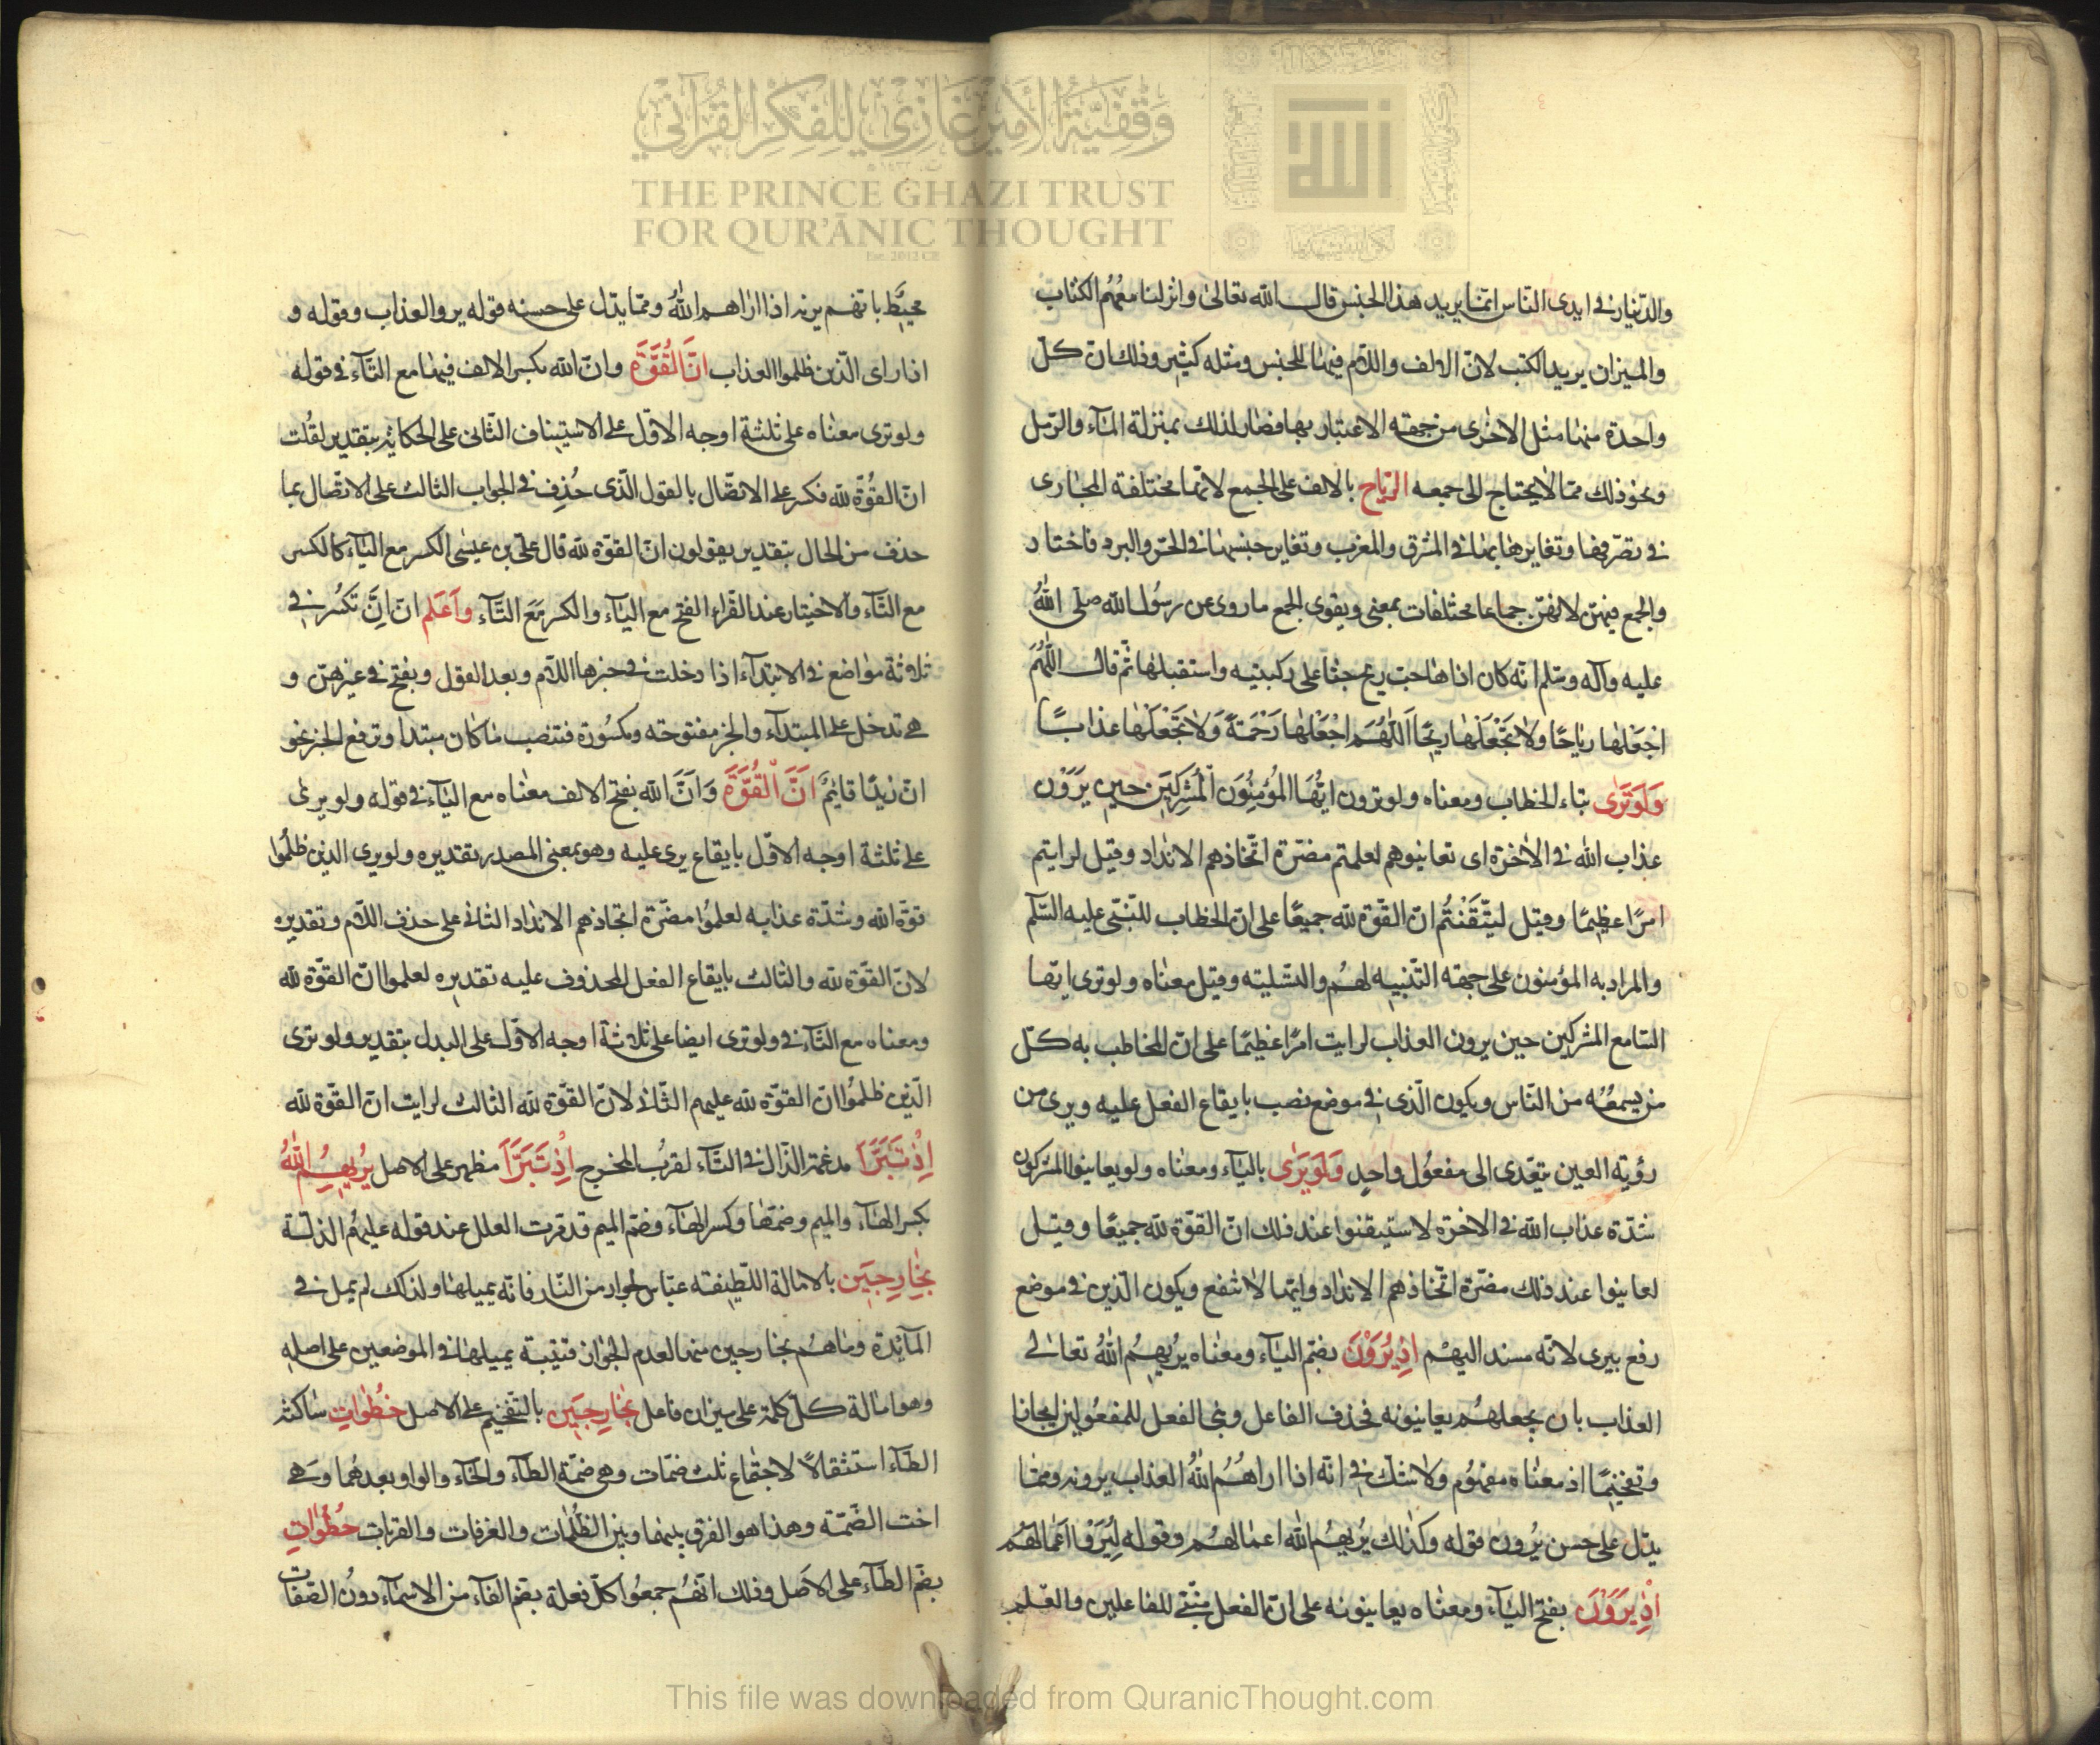 والدّينار في ايدى النّاس انّما يريد هذا الجنس قال الله تعالى وانزلنا معهُم الكتاب
والميزان يريد الكتب لانّ الالف واللّام فيها للجنس ومثله كثير وذلك ان كلّ
واحدة منها مثل الاخرى من جهته الاعتبار بها فصار لذلك بمنزلة المآء والرّمل
ونحو ذلك ممّا لا يحتاج الى جمعه الرّياح بالالف على الجمع لانّها مختلفة المجارى
في تصرّفها وتغاير هبابها في المشرق والمغرب وتغاير جنسها في الحرّ والبرد فاختار
والجمع فيهنّ لانهنّ جماعا مختلفات بمعنى ويقوى الجمع ما روى عن رسُول الله صلّى اللهُ
عليه وآله وسلم انّه كان اذا هاجت ريح جثا على ركبتيه واستقبلها ثمّ قال اللّهُمَّ
اجْعَلها رياحًا ولا تجْعَلْها ريحًا اَللّهُمَّ اجْعَلها رَحْمَةً وَلا تَجْعَلْها عذابًا
وَلَوْ تَرى بتاء الخطاب ومعناه ولو ترون ايّهَا المُؤمِنُونَ المُشْرِكِينَ حين يَرَوْن
عذاب الله في الآخرة اى تعاينوهم لعلمتم مضرّة اتّخاذهم الانداد وقيل لرايتم
امرًا عظيمًا وقيل لَتيقّنْتُم انّ القّوة لله جميعًا على انّ الخطاب للنّبىّ عليه السّلم
والمراد به المؤمنون على جهة التّنبيه لهُم والتسلية وقيل معناه ولو ترى ايّها
السّامع المشركين حين يرون العذاب لرايت امرًا عظيمًا على انّ المخاطب به كلّ
من يسمعُه من النّاس ويكون الّذى في موضع نصب بايقاع الفعل عليه ويرى من
رؤية العين يتعّدى الى مفعُول واحدٍ وَلَوْ يَرى باليآء ومعناه ولو يعاينوا المشركون
شدّة عذاب الله في الاخرة لاستيقنوا عند ذلك انّ القّوة لله جميعًا وقيل
لعاينوا عند ذلك مضرّة اتّخاذهم الانداد وانّها لا تنفع ويكون الّذين في موضع
رفع بيرى لانّه مسند اليهم اذ يُرَوْنَ بضمّ اليآء ومعناه يريهُم اللهُ تعالى
العذاب بان يجعلهُم يعاينونه فحذف الفاعل وبنى الفعل للمفعُولين ايجازا
وتفخيمًا اذ معناه مفهُوم ولا شكّ في انّه اذا اراهُم اللهُ العذاب يرونه وممّا
يدّل على حسن يُرون قوله وكذلك يُريهُم الله اعمالهُم وقوله لِيُرَوْا اعمالهُم
اِذْ يَرَوْنَ بفتح اليآء ومعناه يعاينونه على انّ الفعل مبنىّ للفاعلين والعلم
محيط بانّهم يرنه اذا اراهم اللهُ وممّا يدّل على حسنه قوله يروا العذاب وقوله و
اذا راى الّذين ظلموا العذاب انّ القُوَّةَ وانّ الله بكسر الالف فيهما مع التّآء في قوله
ولو ترى معناه على ثلثة اوجه الاوّل على الاستيناف الثّانى على الحكاية بتقدير لقُلت
انّ القُوّة لله فكسر على الاتصّال بالقول الّذى حُذِف في الجواب الثالث على الاتّصال بما
حذف من الحال بتقدير يقولون انّ القّوة لله قال علىّ بن عيسى الكسر مع اليآء كالكسر
مع التّآء والاختيار عند القراء الفتح مع اليآء والكسر مَعَ التّآء وَاعْلم انّ اِنَّ تكسُر في
ثلاثة مواضع في الابتدآء اذا دخلت في خبرها اللّام وبعد القول وبفتح في غيرهنّ و
هى تدخل على المبتدآء والخبر مفتوحته ومكسُورة فتنصب ما كان مبتدا وترفع الخبر نحو
انّ زيدًا قائِمٌ اَنَّ الْقُوَّةَ وَاَنَّ الله بفتح الالف معناه مع اليآء في قوله ولو يرى
على ثلثة اوجه الاوّل بايقاع يرى عليه وهو بمعنى المصدر تقديره ولو يرى الذين ظلمُوا
قوّة الله وشدّة عذابه لعلمُوا مضرّة اتخاذهم الانداد الثانى على حذف اللّام وتقديره
لانّ القّوة لله والثالث بايقاع الفعل المحذوف عليه تقديره لعلموا انّ القّوة لله
ومعناه مع التّآء في ولو ترى ايضا على ثلاثة اوجه الاوّل على البدل بتقدير ولو ترى
الّذين ظلمُوا انّ القوّة لله عليهم الثّانى لانّ القّوة لله الثالث لرايت انّ القّوة لله
اِذْ تَبَرَّاَ مدغمة الذّال في التّآء لقربُ المخرج اِذْ تَبَرَّاَ مظهر على الاصل يُريهِمُ اللهُ
بكسر الهآء والميم وضمّها وكسر الهآء وضمّ الميم قد مرّت العلل عند قوله عليهُم الذلّة
بِخارِجين بالامالة اللّطيفة عبّاس لجوار من النّار فانّه يميلها ولذلك لم يمل في
المآئِدة وما هُم بخارجين منها لعدم الجوار قتيبة يميلها في الموضعين على اصله
وهو امالة كلّ كلمة على ميزان فاعل بِخارِجين بالتّفخيم على الاصل خُطْوات ساكنة
الطّآء استثقالًا لاجتماع ثلث ضمّات وهى ضمّة الطّآء والخآء والواو بعدهُما وَهى
اخت الضّمّة وهذا هو الفرق بينها وبين الظّلُمات والغرفات والقربات خُطُواتِ
بضمّ الطّآء على الاَصل وذلك انّهُم جمعُوا كلّ فعلة بضمّ الفآء من الاسمآء دونُ الصّفات
وَقْفِيَّةُ الأَمِيرِ غَازِي لِلْفِكْرِ الْقُرْآنِي
THE PRINCE GHAZI TRUST
FOR QUR'ĀNIC THOUGHT
Est. 2012 CE
This file was downloaded from QuranicThought.com